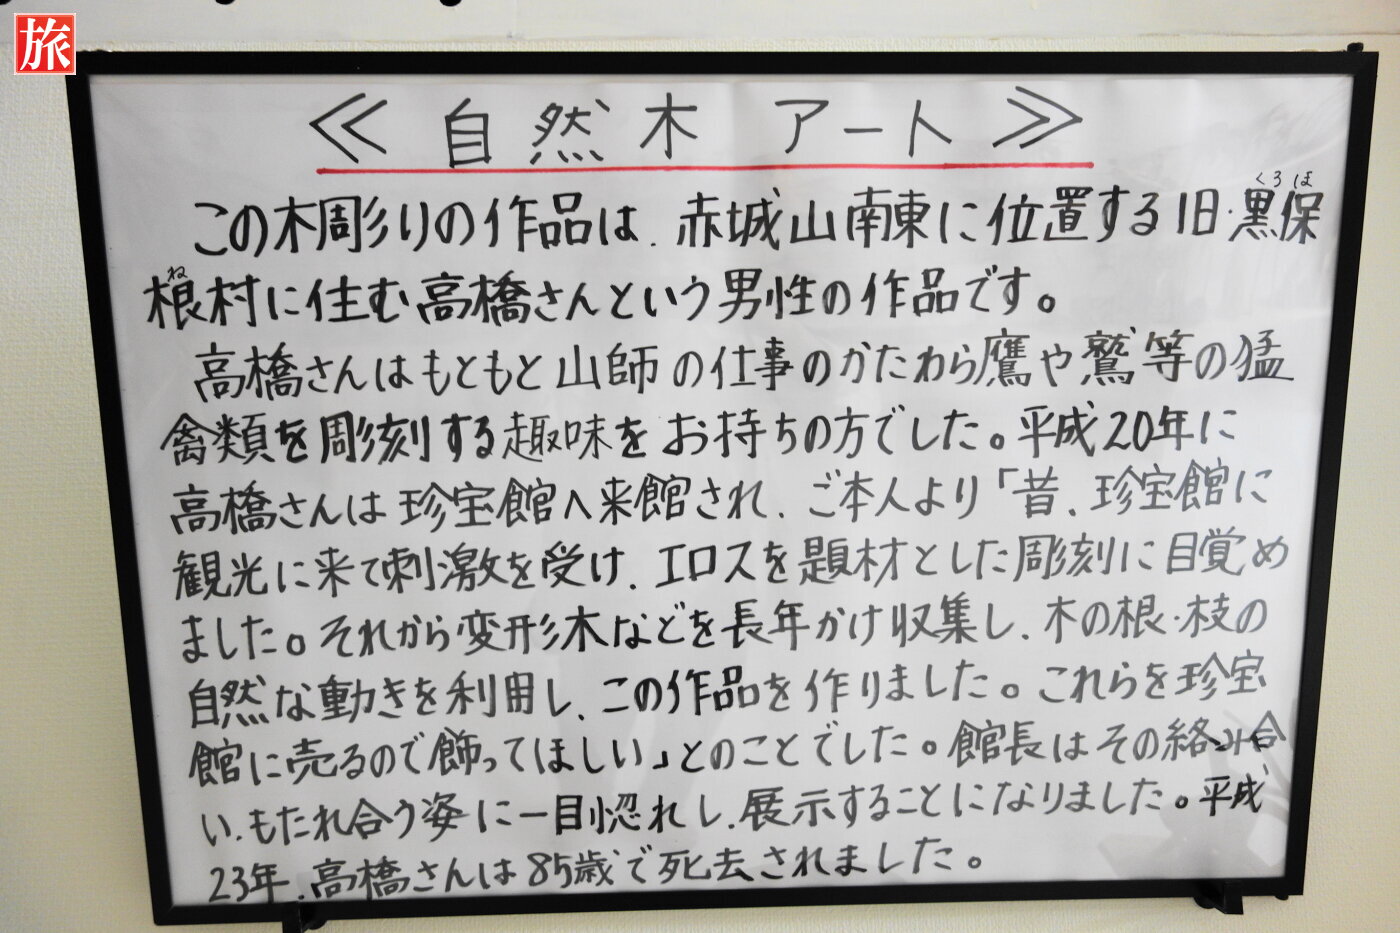 旅
≪ 自然木 アート ≫
この木彫りの作品は、赤城山南東に位置する旧・黒保
くろほ
根村に住む高橋さんという男性の作品です。
ね
高橋さんはもともと山師の仕事のかたわら鷹や鷲等の猛
禽類を彫刻する趣味をお持ちの方でした。平成20年に
高橋さんは珍宝館へ来館され、ご本人より「昔、珍宝館に
観光に来て刺激を受け、エロスを題材とした彫刻に目覚め
ました。それから変形木などを長年かけ収集し、木の根・枝の
自然な動きを利用し、この作品を作りました。これらを珍宝
館に売るので飾ってほしい」とのことでした。館長はその絡み合
い、もたれ合う姿に一目惚れし、展示することになりました。平成
23年、高橋さんは85歳で死去されました。